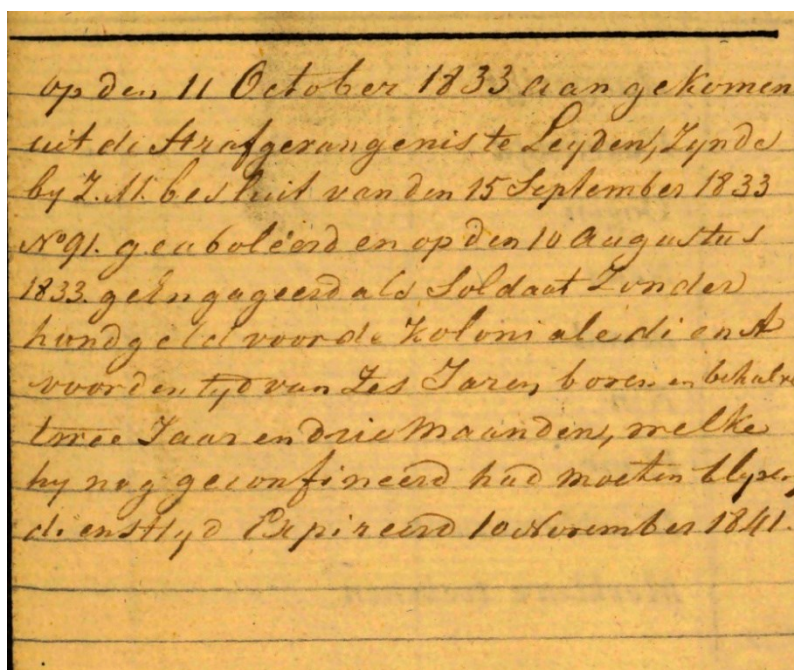 op den 11 October 1833 aangekomen
uit de Strafgevangenis te Leyden, Zynde
by Z.M. besluit van den 15 September 1833
No 91. geaboleerd en op den 10 Augustus
1833. geëngageerd als Soldaat Zonder
handgeld voor de Koloniale dienst
voor den tyd van Zes Jaren, boven en behalve
twee Jaar en drie Maanden, welke
hy nog geconfineerd had moeten blyven,
diensttyd Expireerd 10 November 1841.